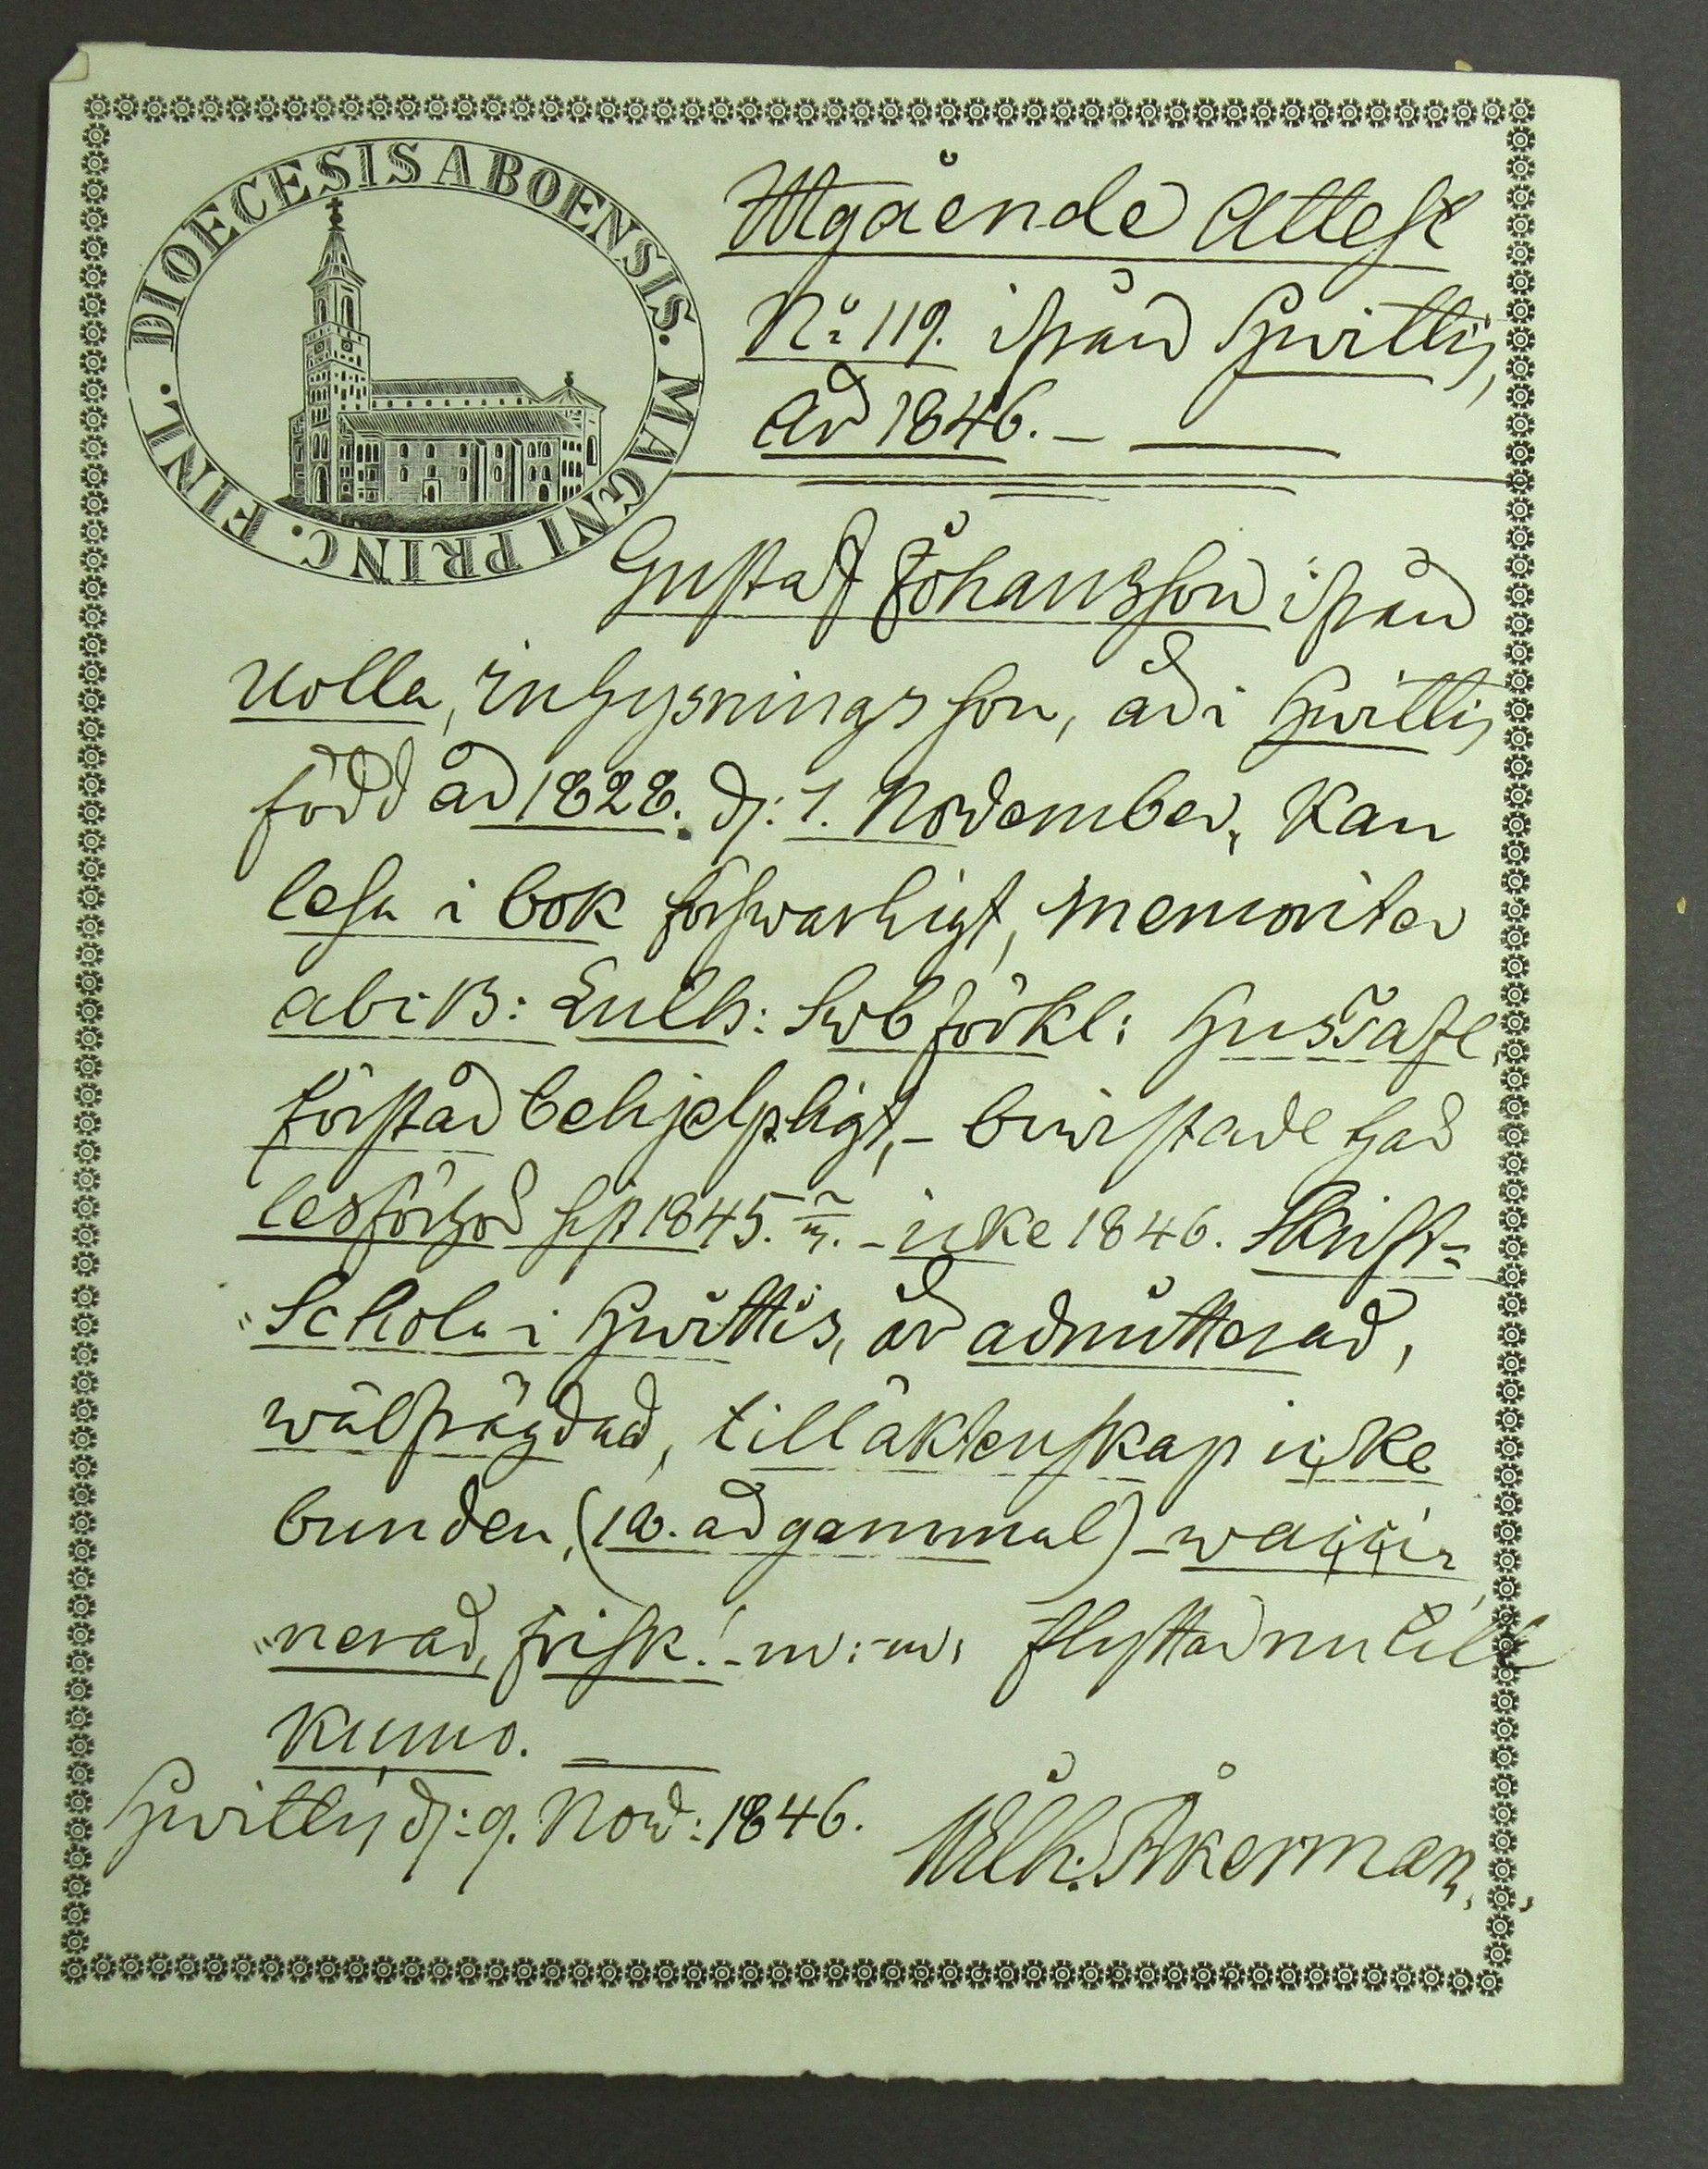 DIOECESIS ABOENSIS. MAGNI PRINC. FINL.
Utgående Attest
No 119. ifrån Hvittis,
år 1846. —
Gustaf Johansson ifrån
Uolla, inhysnings son, är i Hvittis
född år 1828. d: 1. November, kan
läsa i bok försvarligt, memoriter
abiB: Luth: Swb förkl: Hustafl,
förstår behjelpligt, - bewistade här
läsförhör sist 1845. - icke 1846. Skrift-
"Schola i Hvittis, är admitterad,
wälfrägdad, till äktenskap icke
bunden, (18. år gammal) - wacci-
"nerad, frisk! - m: m: flyttar nu till
Kumo. —
Hvittis d: 9. Nov: 1846.
Wilh: Åkerman,